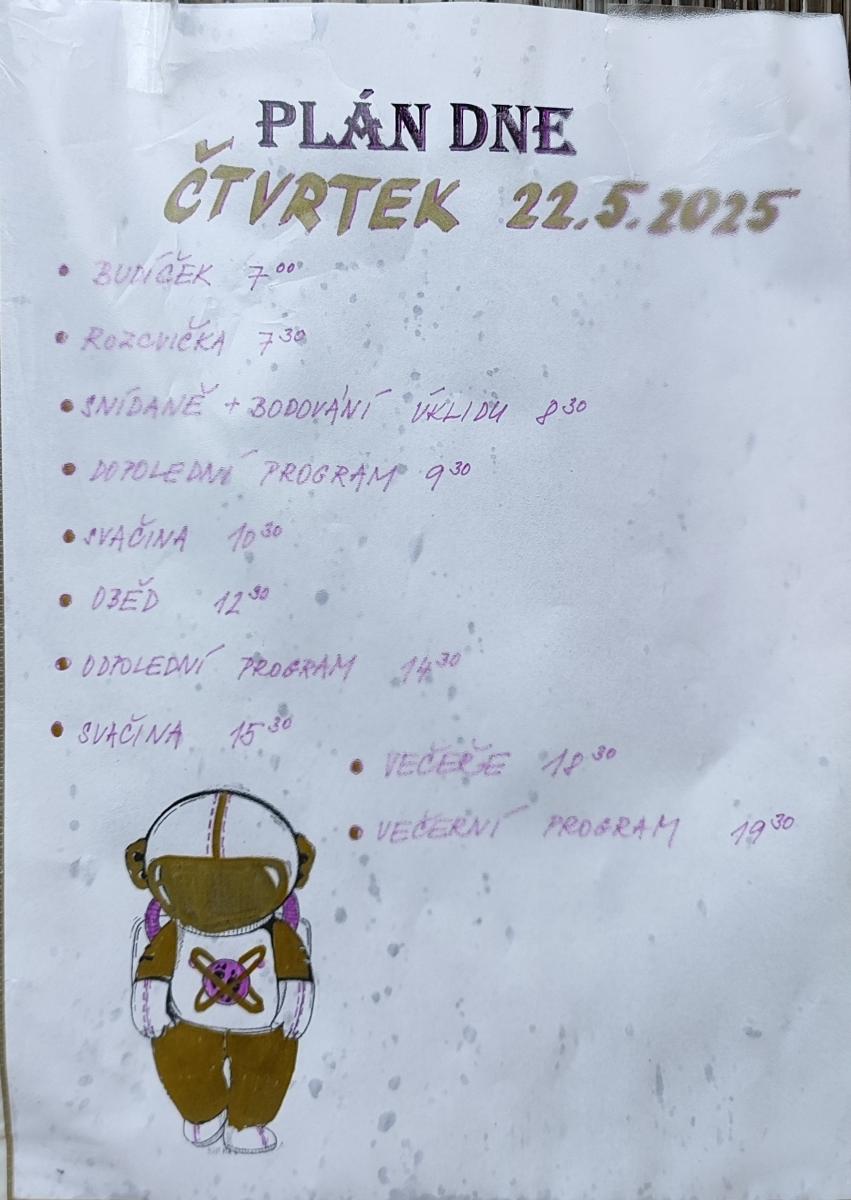 PLÁN DNE
ČTVRTEK 22.5.2025
• BUDÍČEK 7⁰⁰
• ROZCVIČKA 7³⁰
• SNÍDANĚ + BODOVÁNÍ ÚKLIDU 8³⁰
• DOPOLEDNÍ PROGRAM 9³⁰
• SVAČINA 10³⁰
• OBĚD 12³⁰
• ODPOLEDNÍ PROGRAM 14³⁰
• SVAČINA 15³⁰
• VEČEŘE 18³⁰
• VEČERNÍ PROGRAM 19³⁰